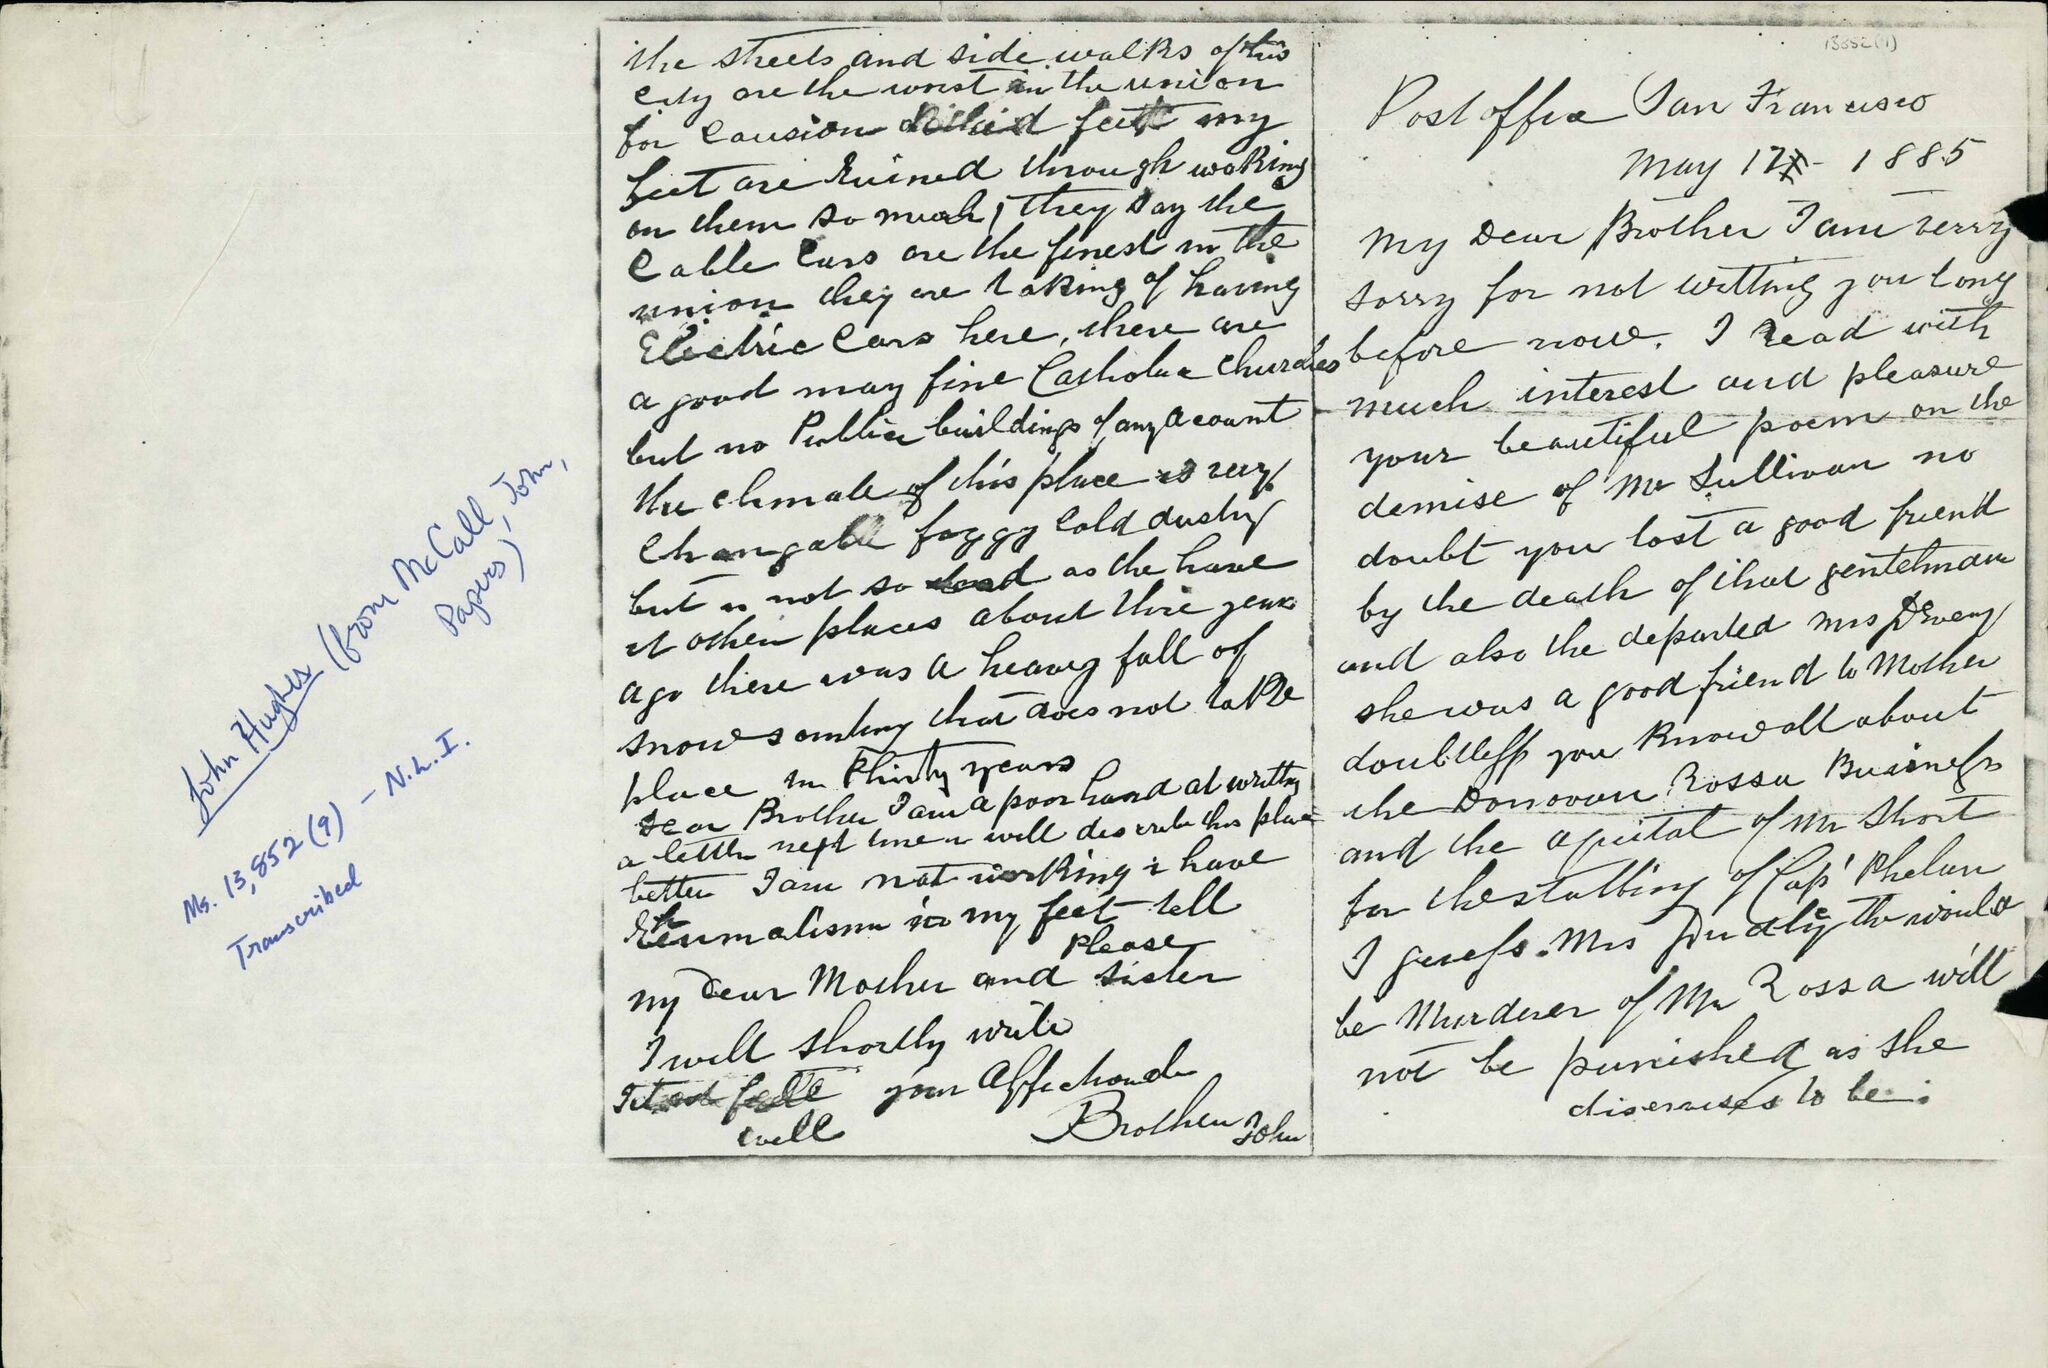 John Hughes (from McCall, John,
Papers)
Ms. 13,852 (9) - N.L.I.
Transcribed
13852(9)
Post office San Francisco
May 17 - 1885
My Dear Brother I am verry
sorry for not writting you long
before now. I read with
much interest and pleasure
your beautiful poem on the
demise of Mr Sullivan no
doubt you lost a good friend
by the death of that gentelman
and also the departed Mrs
she was a good friend to Mother
doubtless you Know all about
the Donovan Rossa Business
and the aquital of Mr Short
for the stabbing of Cap' Phelan
I guess Mrs Dudly the would
be Murderer of Mr Rossa will
not be punished as she
diserveses to be.
the streets and side walks of this
city are the worst in the union
for causion feet my
feet are Ruined through walking
on them so much, they say the
Cable Cars are the finest in the
union they are talking of having
Electric Cars here, there are
a good many fine Catholic churches
but no Public buildings of any acount
the climate of this place is very
changable foggy Cold dusty
but is not so as the have
it other places about thre years
ago there was a heavy fall of
snow somting that does not take
place in thirty years
Dear Brother I am a poor hand at writting
a letter next time i will describe this place
better I am not working i have
Rheumatism in my feet tell
Please
my Dear Mother and sister
I will shortly write
your Affectionate
well Brother John